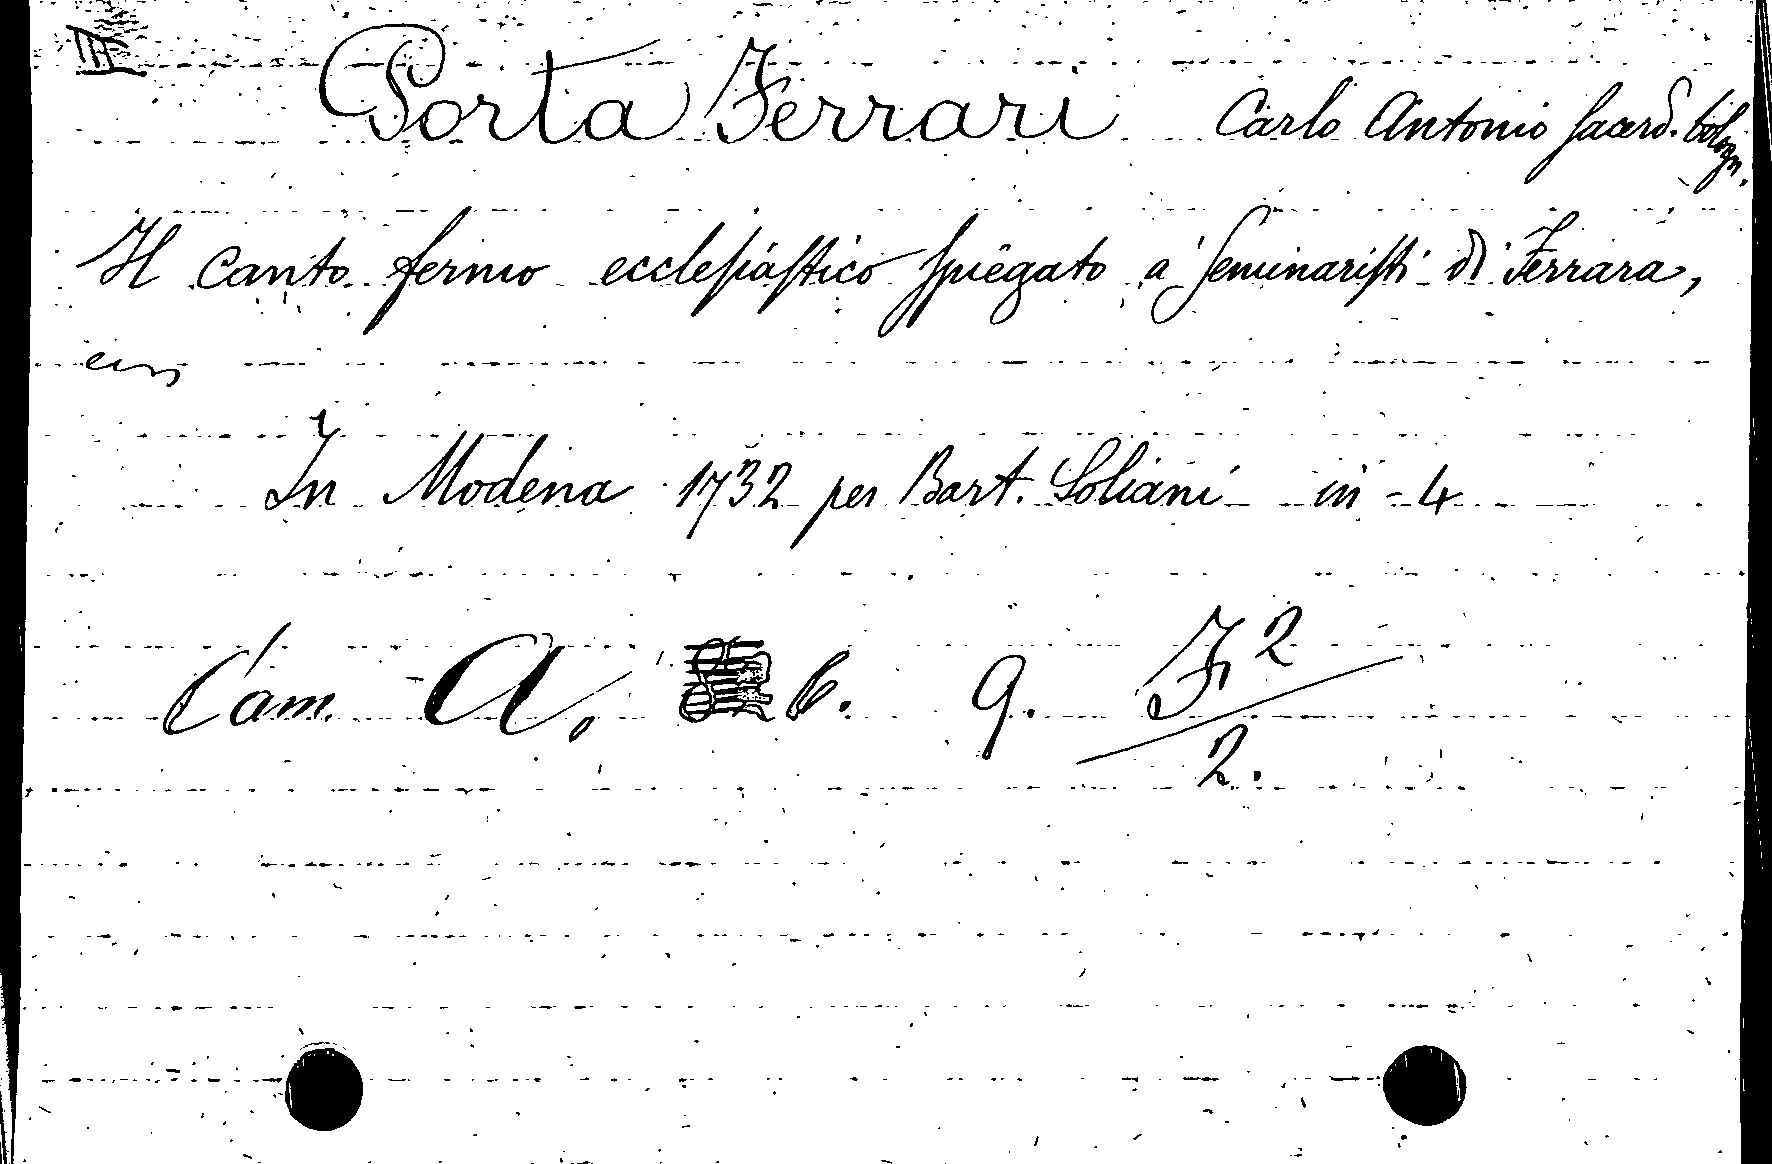 III
Porta Ferrari Carlo Antonio sacerd. bologn.
Il canto fermo ecclesiastico spiegato a' seminaristi di Ferrara,
In Modena 1732 per Bart. Soliani in-4
Cam. A. b. 9. F2/2.